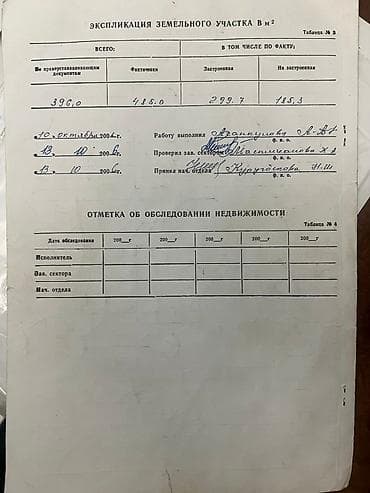 ЭКСПЛИКАЦИЯ ЗЕМЕЛЬНОГО УЧАСТКА В м²
Таблица № 3
ВСЕГО: В ТОМ ЧИСЛЕ ПО ФАКТУ:
По правоустанавливающим документам Фактически Застроенная Не застроенная
396,0 485.0 299.7 185,3
10 октября 2006 г. Работу выполнил
ф. и. о.
13. 10 2006 г. Проверил зав. сектором
ф. и. о.
13. 10 2006 г. Принял нач. отдела
ф. и. о.
ОТМЕТКА ОБ ОБСЛЕДОВАНИИ НЕДВИЖИМОСТИ
Таблица № 4
Дата обследования 200__г 200__г 200__г 200__г 200__г
Исполнитель
Зав. сектора
Нач. отдела